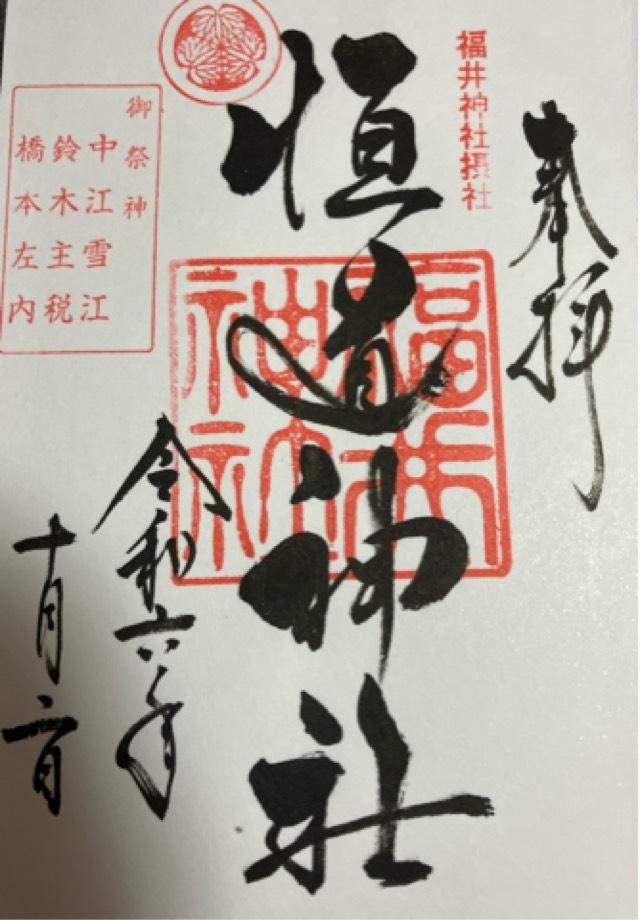 奉拝
福井神社摂社
恒道神社
福井神社
令和六年
十月二日
御祭神
中江雪江
鈴木主税
橋本左内